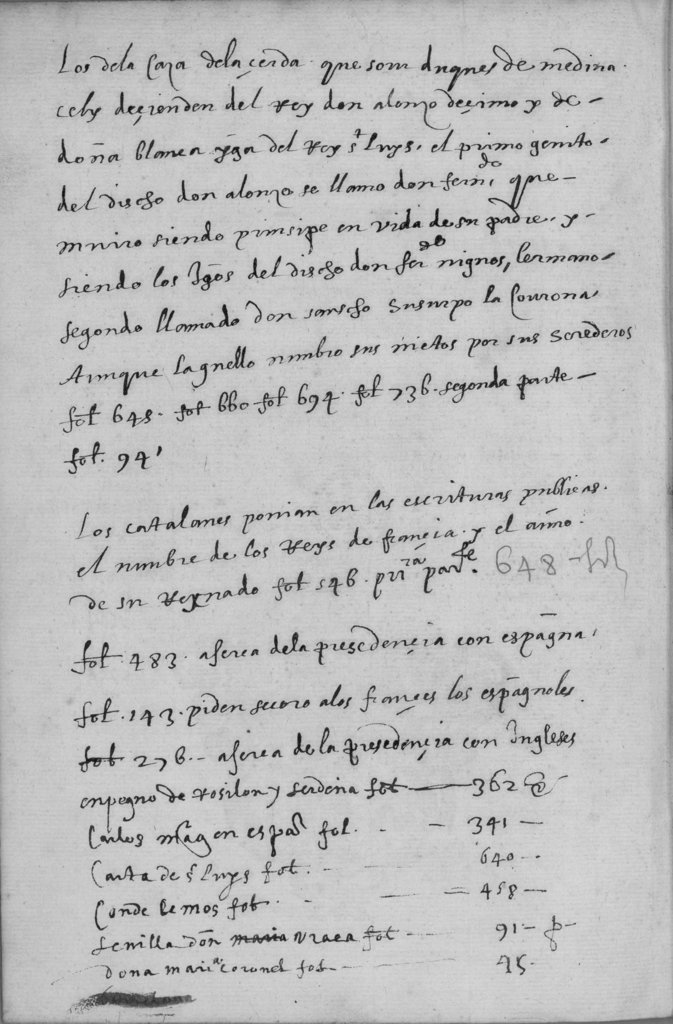 Los dela Caza dela çerda que som duques de medina
cely deçienden del Rey don alonzo deçimo y de
doña blanca yga del Rey st Luys. el primo genito
del discho don alonzo se llamo don ferndo, que
muiro siendo prinsipe en vida de su padre. y
siendo los Igos del discho don ferdo nignos, lermano
segondo llamado don sanscho susurpo la Courona
Aunque laquello numbro sus nietos por sus Herederos
fol 645. fol 660 fol 694. fol 736. segonda parte
fol. 94
Los catalanes ponian en las escrituras publicas
el numbre de los Reys de francia. y el anno.
de su Reynado fol 546. prira parte. 648 - fol
fol. 483. aserca dela presedençia con españa
fol. 143. piden secoro alos frances los españoles
fol 276. aserca de la presedençia con Ingleses
enpegno de Rosilon y serdena fol 362
Carlos mag en espa fol. 341
Carta de st Luys fol. 640
Conde Lemos fol 458
Sevilla don maria Uraca fol 91
dona maria coronel fol. 45